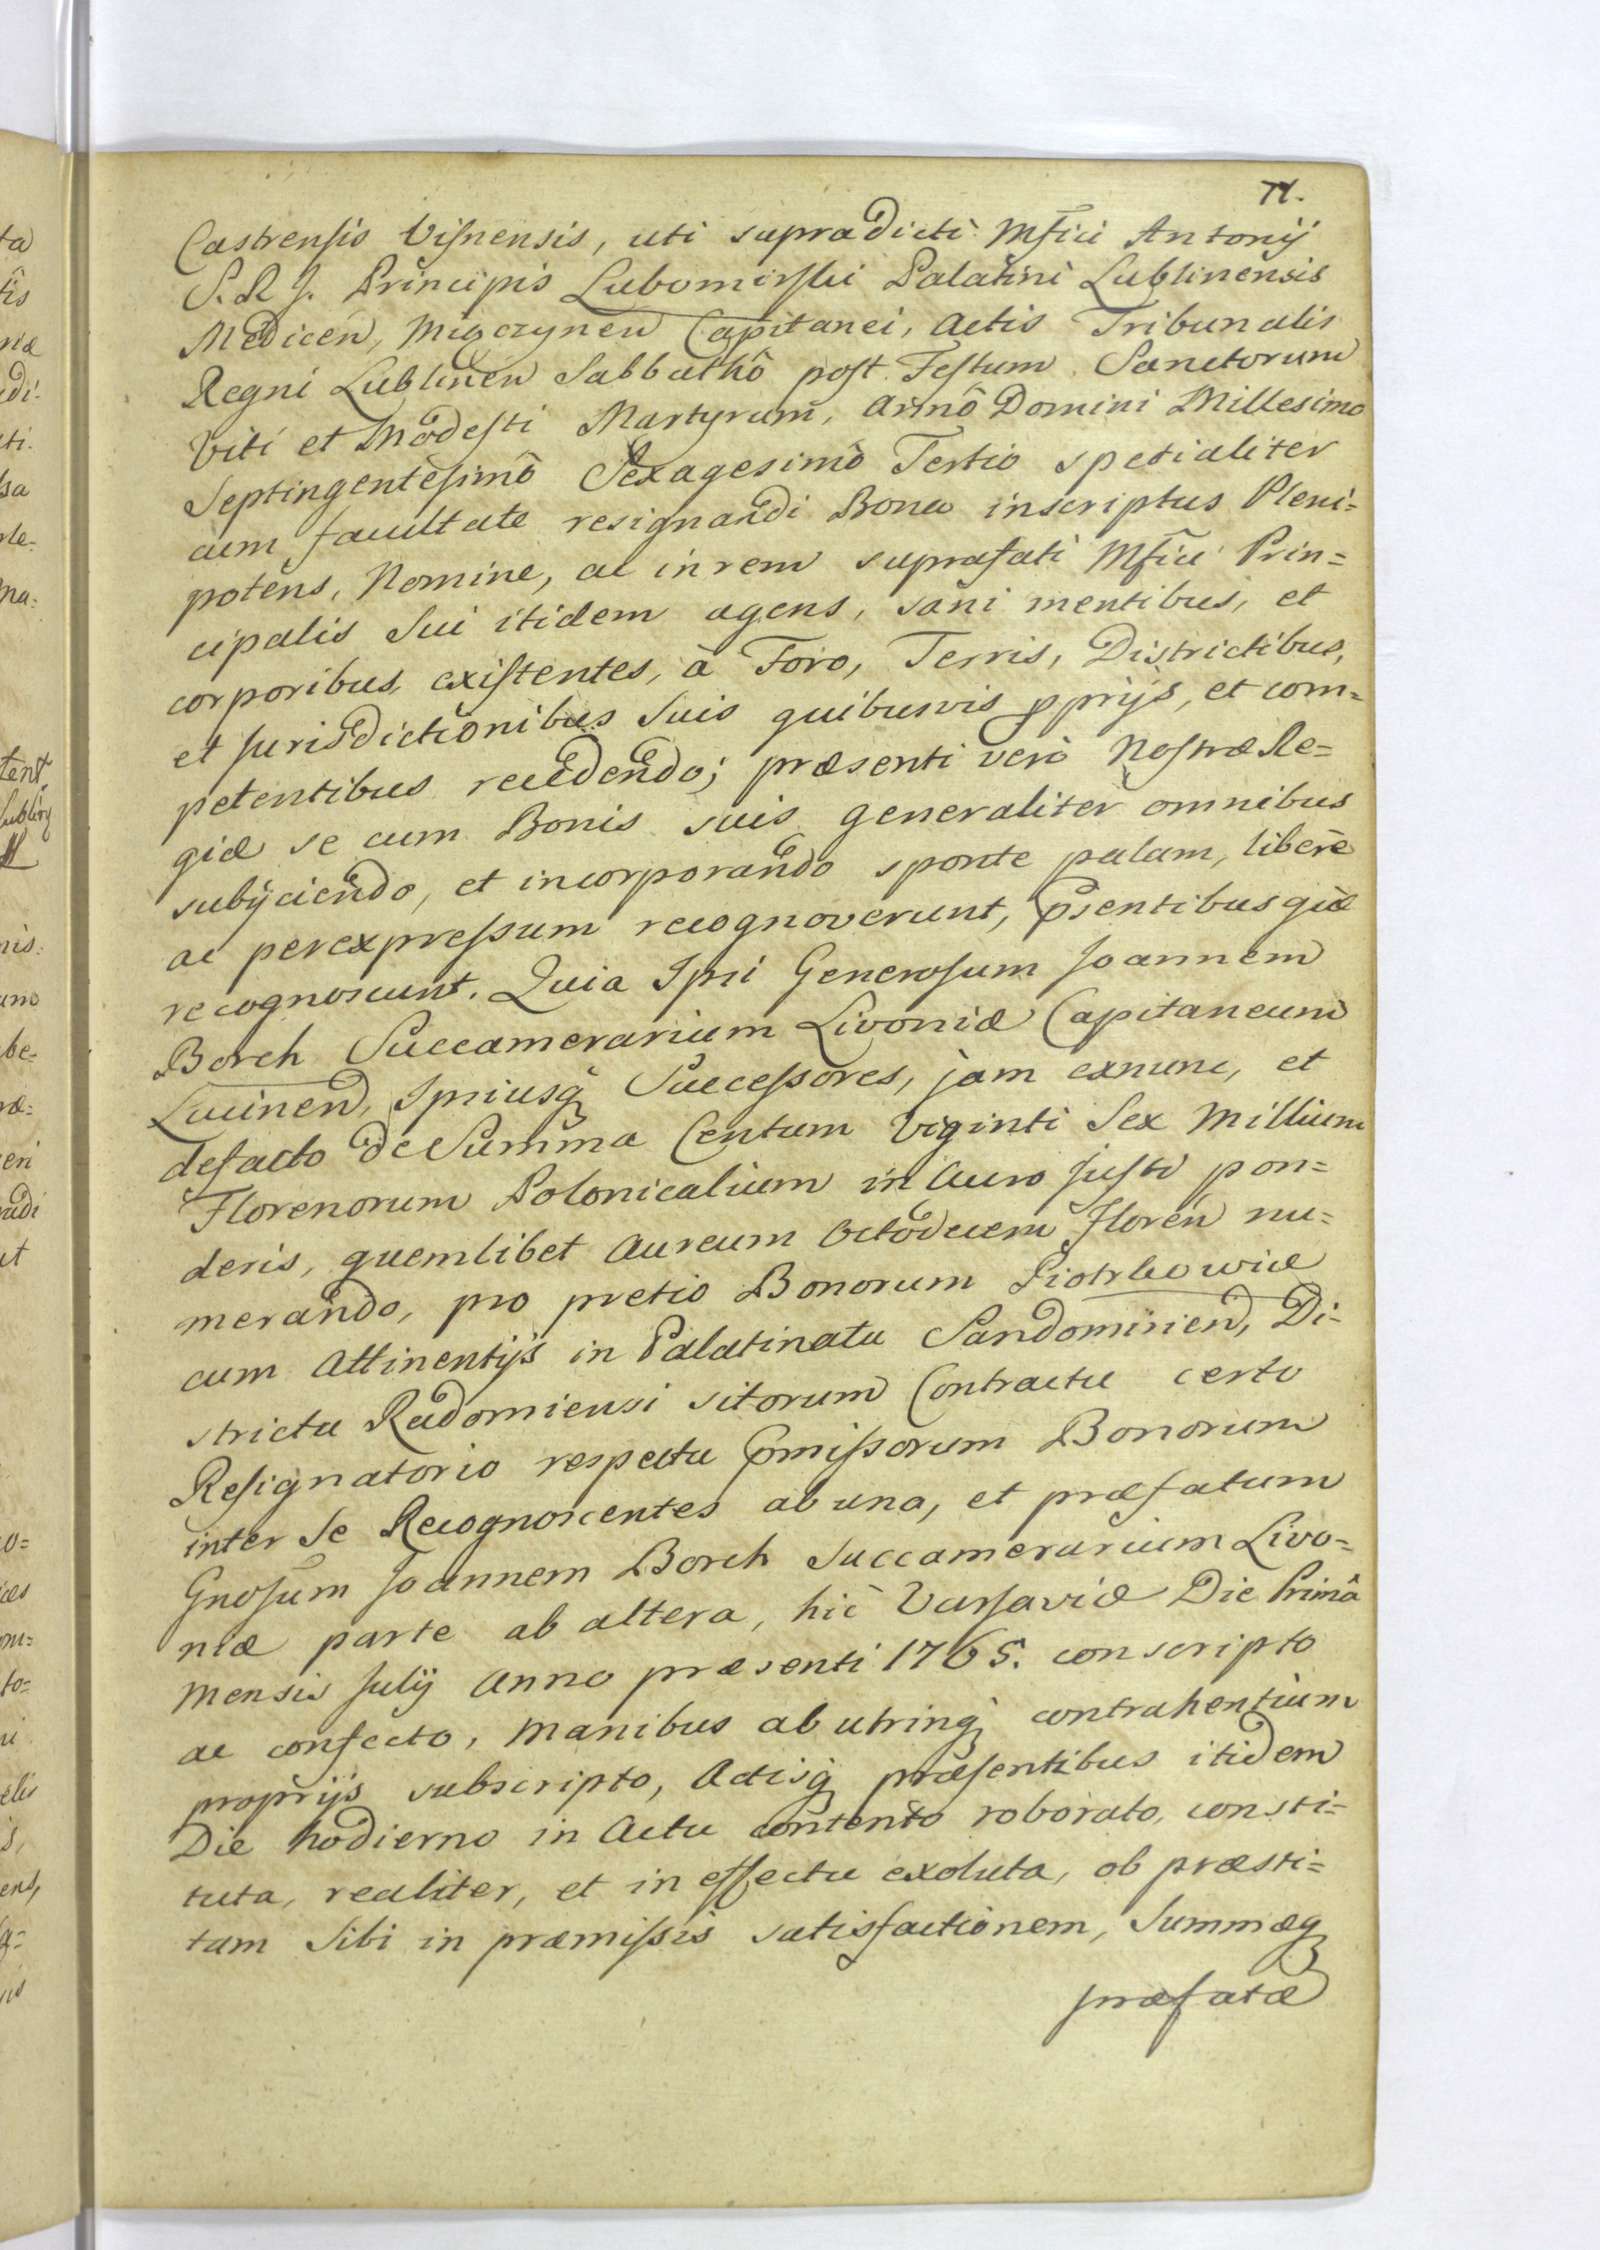 71.
Castrensis Visnensis, uti supradicti Mfici Antonij
S. R. J. Principis Lubomirski Palatini Lublinensis
Medicen, Migczynen Capitanei, Actis Tribunalis
Regni Lublinen Sabbathô post Festum Sanctorum
Viti et Modesti Martyrum, Annô Domini Millesimo
Septingentesimô Sexagesimô Tertio spetialiter
cum facultate resignandi Bona inscriptus Pleni=
potens, Nomine, ac in rem suprafati Mfici Prin=
cipalis Sui itidem agens, sani mentibus, et
corporibus existentes, à Foro, Terris, Districtibus,
et Jurisdictionibus Suis quibusvis pprijs, et com=
petentibus recedendo; præsenti verò Nostræ Re=
giæ se cum Bonis suis generaliter omnibus
subijciendo, et incorporando sponte palam, liberè
ac per expressum recognoverunt, psentibusque
recognoscunt. Quia Ipsi Generosum Joannem
Borch Succamerarium Livoniæ Capitaneum
Lucinen, Ipsiusq Successores, jam exnunc, et
defacto de Summa Centum Viginti Sex Millium
Florenorum Polonicalium in Auro justi pon=
deris, quemlibet Aureum Octodecem Floren nu=
merando, pro pretio Bonorum Piotrkowice
cum Attinentijs in Palatinatu Sandomirien, Di=
strictu Radomiensi sitorum Contractu certo
Resignatorio respectu pmissorum Bonorum
inter Se Recognoscentes ab una, et præfatum
Gnosum Joannem Borch Succamerarium Livo=
niæ parte ab altera, hic Varsaviæ Die Primâ
Mensis Julij Anno præsenti 1765. conscripto
ac confecto, Manibus ab utrinq contrahentium
proprijs subscripto, Actisq præsentibus itidem
Die hodierno in Actu contento roborato, consti=
tuta, realiter, et in effectu exoluta, ob præsti=
tam Sibi in præmissis satisfactionem, Summæq
præfatæ